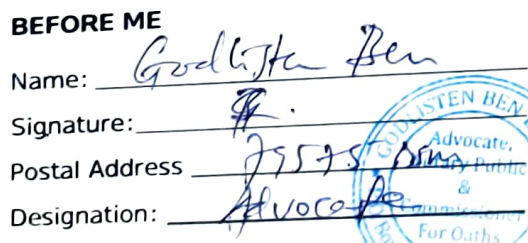 BEFORE ME
Name: Godlisten Ben
Signature:
Postal Address 79575 Dsm
Designation: Advocate
GODLISTEN BEN
Advocate,
Notary Public
&
Commissioner
For Oaths